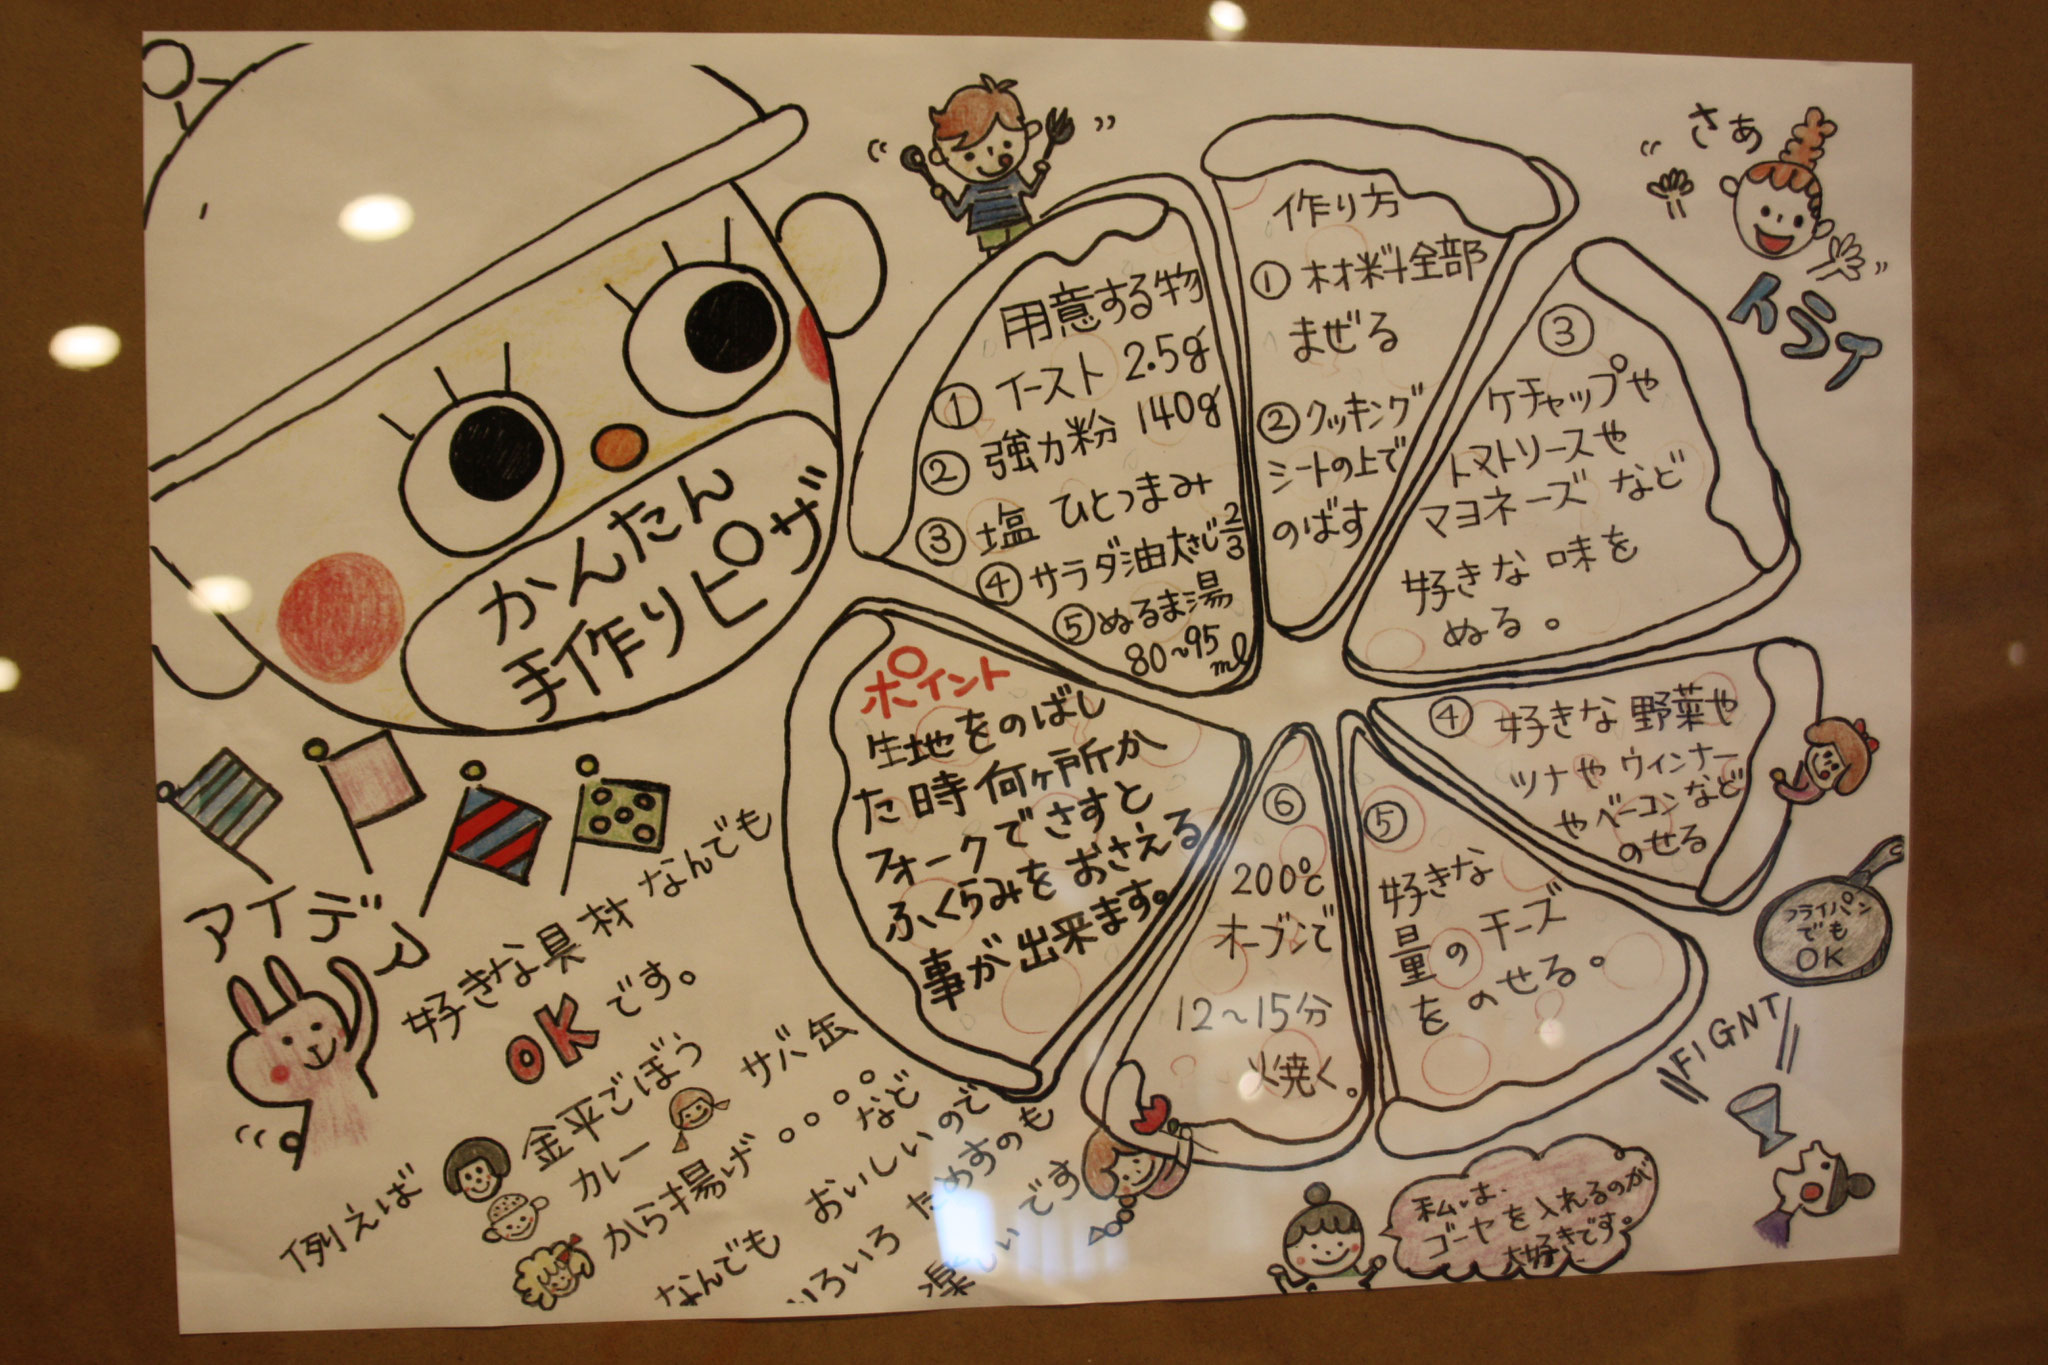 かんたん
手作りピザ
用意する物
① イースト 2.5g
② 強力粉 140g
③ 塩 ひとつまみ
④ サラダ油 大さじ2/3
⑤ ぬるま湯
80~95ml
作り方
① 材料全部
まぜる
② クッキング
シートの上で
のばす
③
ケチャップや
トマトソースや
マヨネーズなど
好きな味を
ぬる。
④ 好きな野菜や
ツナやウィンナー
やベーコンなど
のせる
⑤
好きな
量のチーズ
をのせる。
⑥
200℃
オーブンで
12~15分
焼く。
ポイント
生地をのばし
た時何ヶ所か
フォークでさすと
ふくらみをおさえる
事が出来ます。
さぁ
フライパン
でも
OK
FIGNT
私は、
ゴーヤを入れるのが
大好きです。
アイデア
好きな具材なんでも
OKです。
例えば
金平ごぼう
カレー
サバ缶
から揚げ 。。。。など
なんでも おいしいので
いろいろ ためすのも
楽しいです